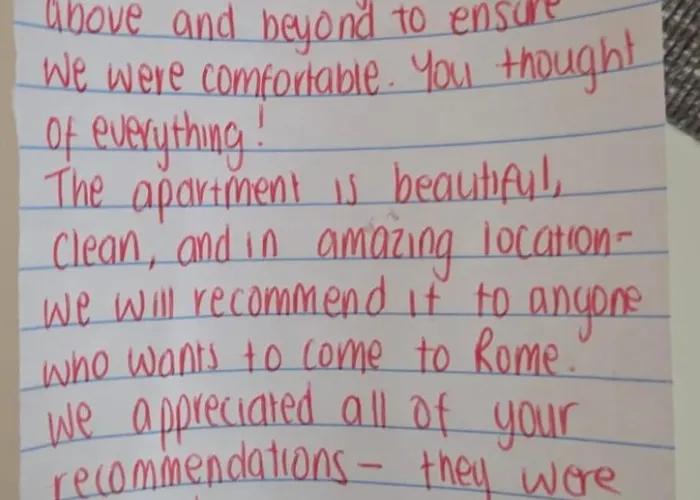 above and beyond to ensure
we were comfortable. You thought
of everything!
The apartment is beautiful,
clean, and in amazing location-
we will recommend it to anyone
who wants to come to Rome.
We appreciated all of your
recommendations - they were